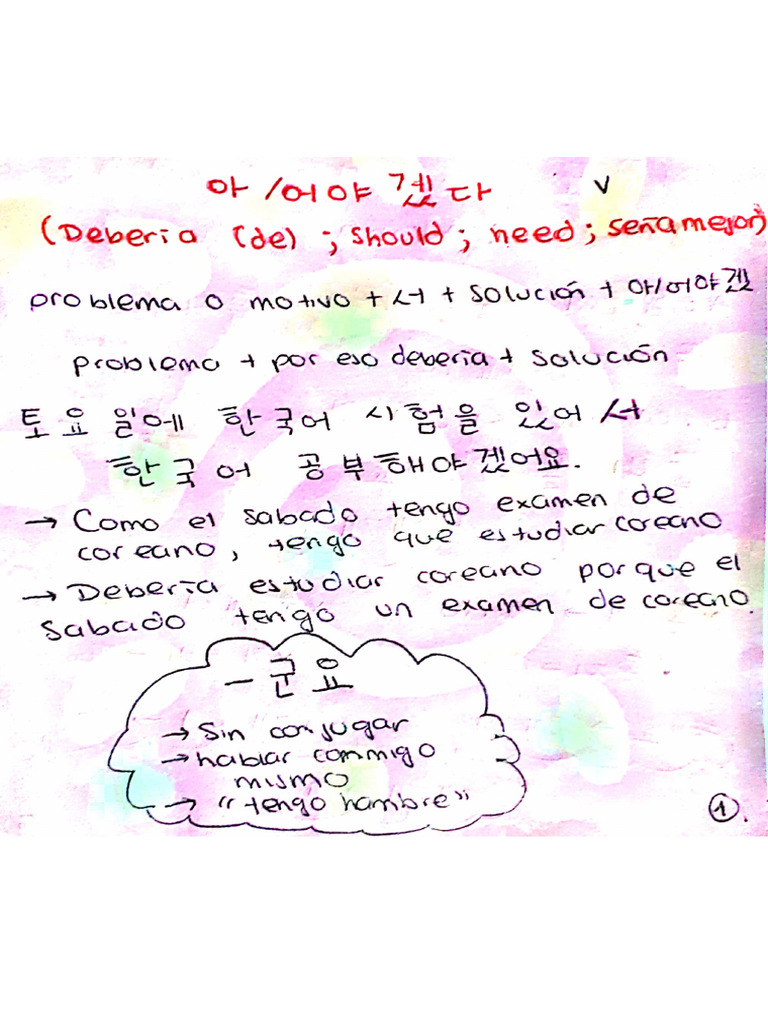 아/어야 겠다 V
(Deberia (de) ; should ; need ; seña mejor)
problema o motivo + 서 + solución + 아/어야겠
problema + por eso deberia + solución
토요일에 한국어 시험을 있어서
한국어 공부해야겠어요.
→ Como el sabado tengo examen de
coreano, tengo que estudiar coreano
→ Debería estudiar coreano porque el
sabado tengo un examen de coreano.
- 군요
→ Sin conjugar
→ hablar conmigo
mismo
→ "tengo hambre"
1.